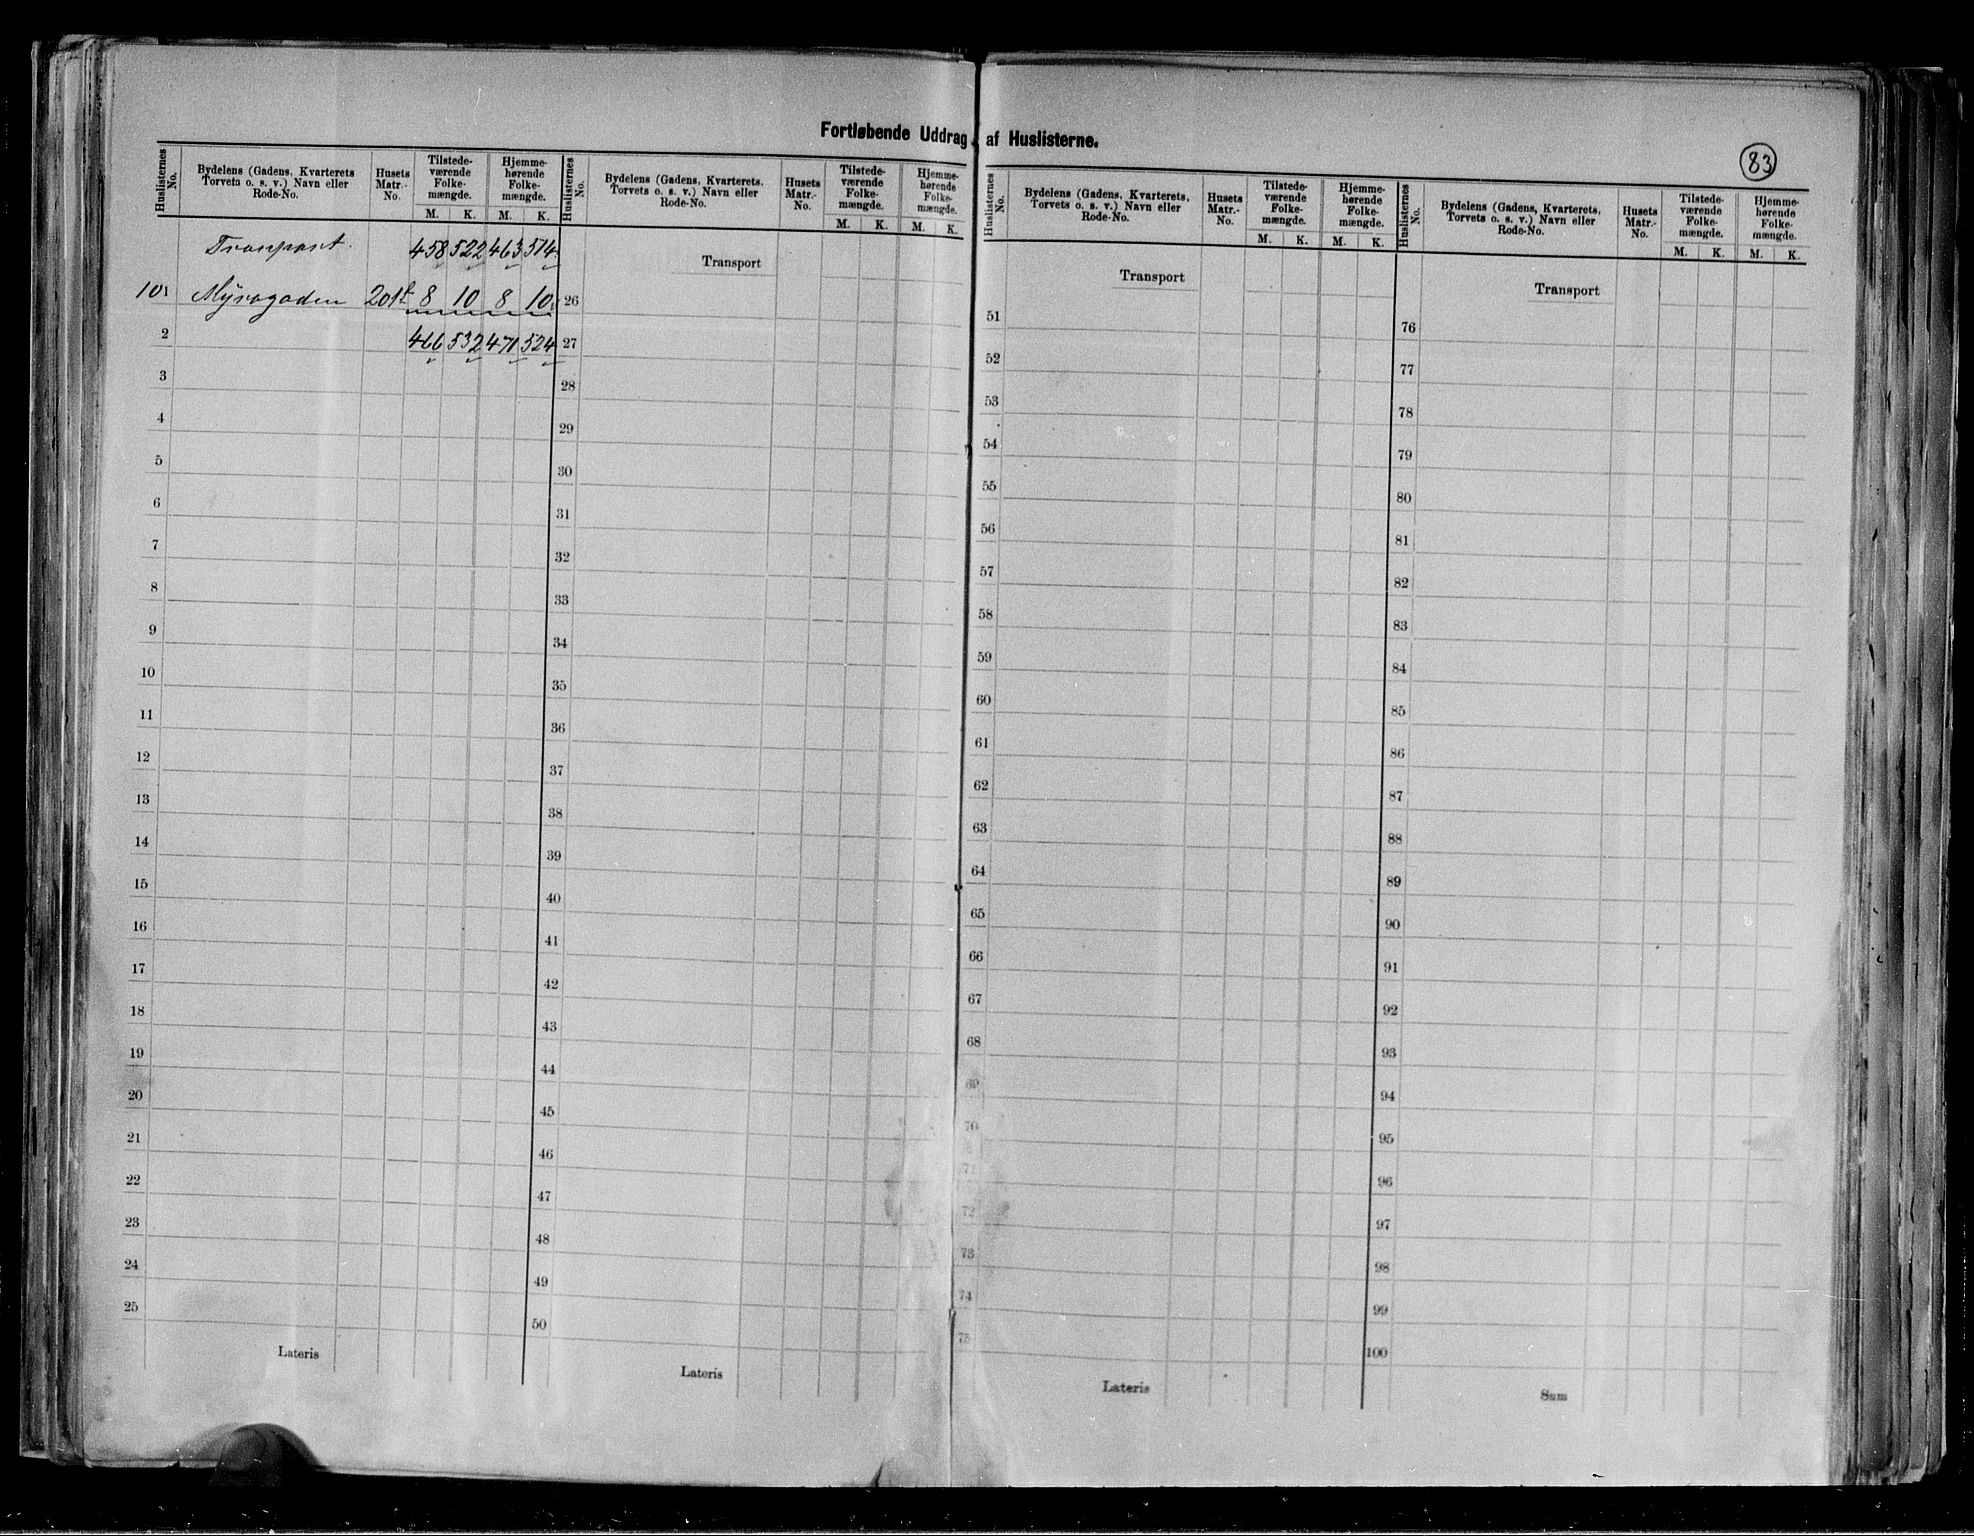 Fortløbende Uddrag af Huslisterne.
83
Huslisternes No.
Bydelens (Gadens, Kvarterets Torvets o. s. v.) Navn eller Rode-No.
Husets Matr.-No.
Tilstede-værende Folke-mængde.
Hjemme-hørende Folke-mængde.
M. K. M. K.
Transport. 458 522 463 514
101 8 10 8 10
2 466 532 471 524
3
4
5
6
7
8
9
10
11
12
13
14
15
16
17
18
19
20
21
22
23
24
25
Lateris
Huslisternes No.
Bydelens (Gadens, Kvarterets, Torvets o. s. v.) Navn eller Rode-No.
Husets Matr.-No.
Tilstede-værende Folke-mængde.
Hjemme-hørende Folke-mængde.
M. K. M. K.
Transport
26
27
28
29
30
31
32
33
34
35
36
37
38
39
40
41
42
43
44
45
46
47
48
49
50
Lateris
Huslisternes No.
Bydelens (Gadens, Kvarterets, Torvets o. s. v.) Navn eller Rode-No.
Husets Matr.-No.
Tilstede-værende Folke-mængde.
Hjemme-hørende Folke-mængde.
M. K. M. K.
Transport
51
52
53
54
55
56
57
58
59
60
61
62
63
64
65
66
67
68
69
70
71
72
73
74
75
Lateris
Huslisternes No.
Bydelens (Gadens, Kvarterets, Torvets o. s. v.) Navn eller Rode-No.
Husets Matr.-No.
Tilstede-værende Folke-mængde.
Hjemme-hørende Folke-mængde.
M. K. M. K.
Transport
76
77
78
79
80
81
82
83
84
85
86
87
88
89
90
91
92
93
94
95
96
97
98
99
100
Sum